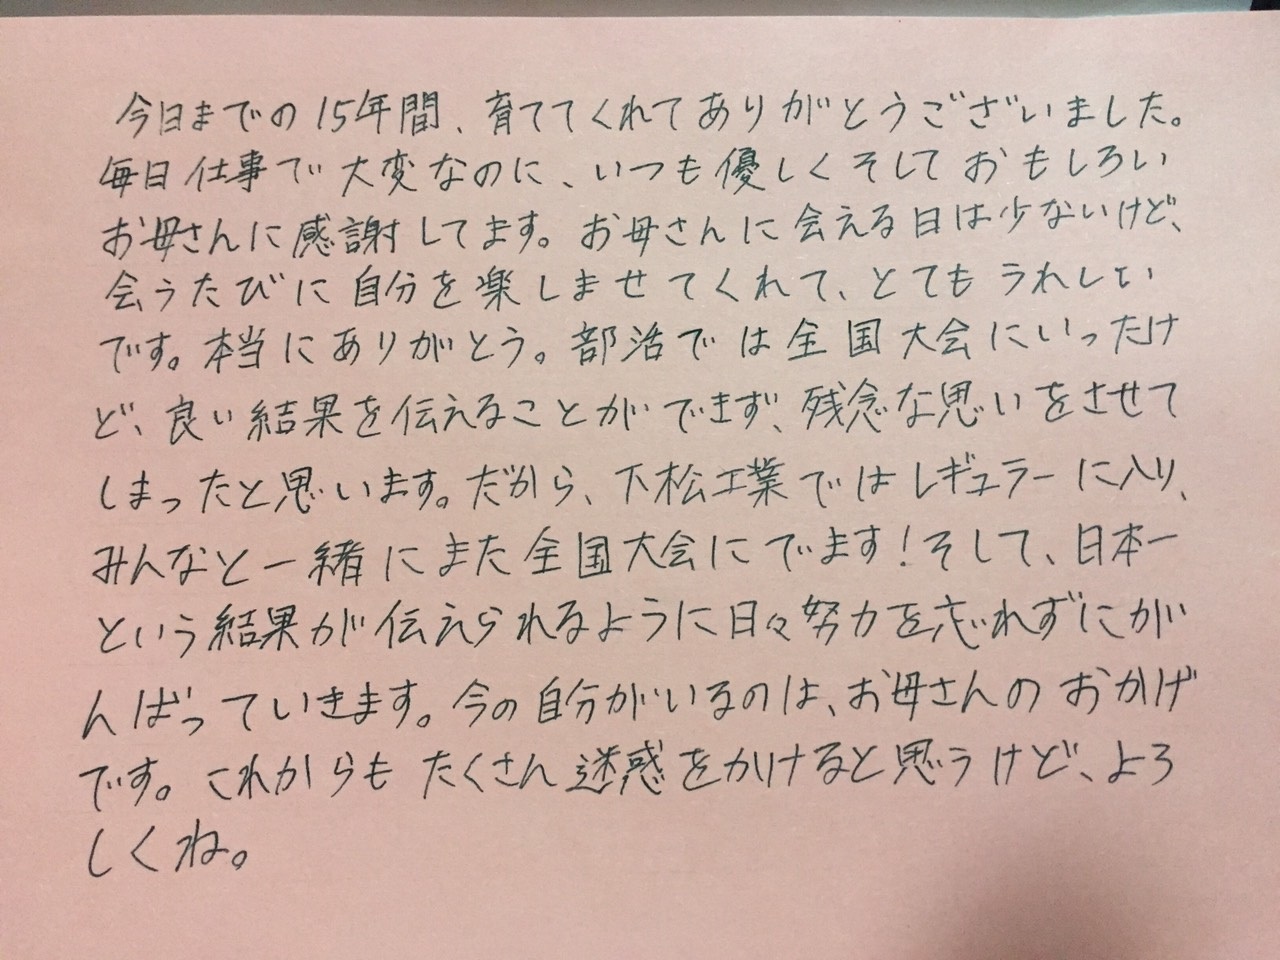 今日までの15年間、育ててくれてありがとうございました。
毎日仕事で大変なのに、いつも優しくそしておもしろい
お母さんに感謝してます。お母さんに会える日は少ないけど、
会うたびに自分を楽しませてくれて、とてもうれしい
です。本当にありがとう。部活では全国大会にいったけ
ど、良い結果を伝えることができず、残念な思いをさせて
しまったと思います。だから、下松工業ではレギュラーに入り、
みんなと一緒にまた全国大会にでます!そして、日本一
という結果が伝えられるように日々努力を忘れずにが
んばっていきます。今の自分がいるのは、お母さんのおかげ
です。これからもたくさん迷惑をかけると思うけど、よろ
しくね。